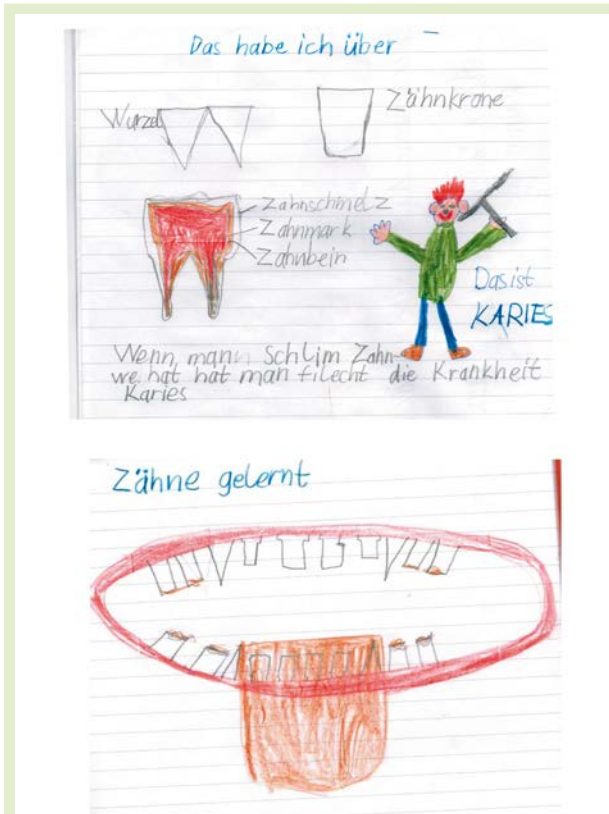 Das habe ich über
Wurzel
Zähnkrone
Zahnschmelz
Zahnmark
Zahnbein
Das ist
KARIES
Wenn mann Schlim Zahn-
we hat hat man filecht die Krankheit
Karies
Zähne gelernt